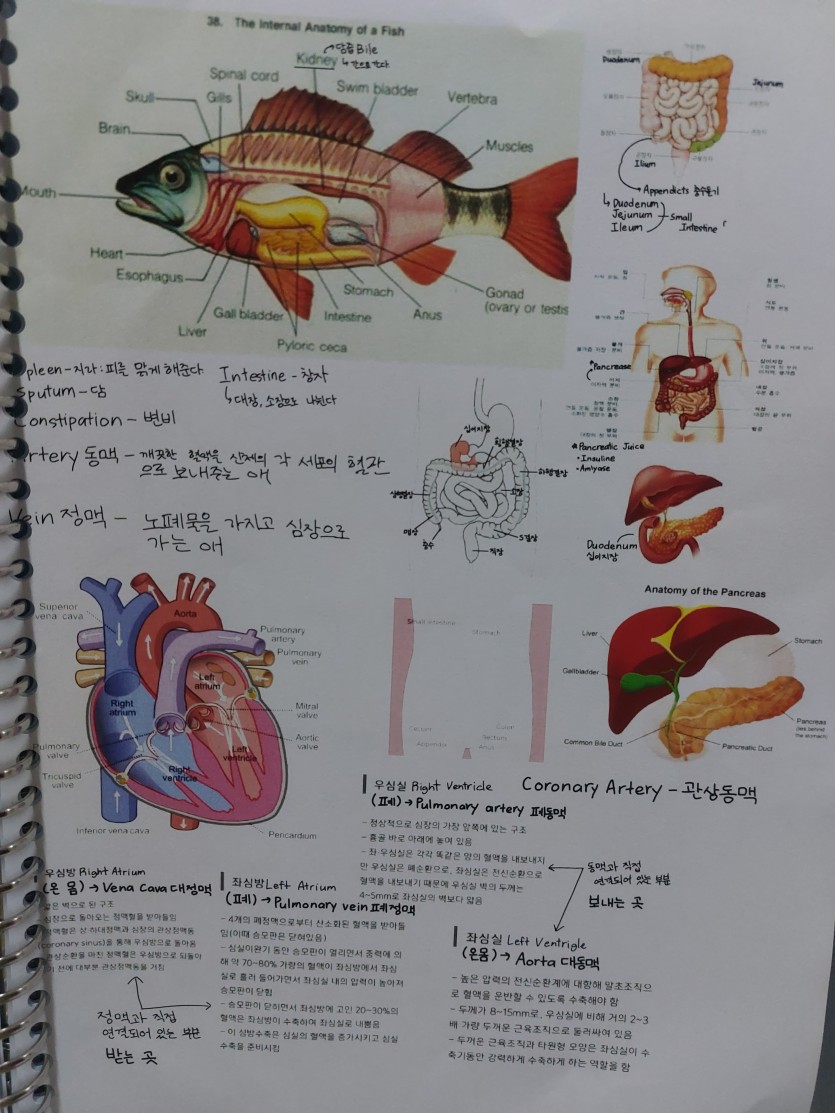 38. The Internal Anatomy of a Fish
담즙 Bile
Kidney
Spinal cord
Swim bladder
Skull
Gills
Vertebra
Brain
Muscles
Mouth
Heart
Esophagus
Stomach
Gonad
(ovary or testis
Gall bladder
Intestine
Anus
Liver
Pyloric ceca
Duodenum
Jejunum
Ilium
Appendicts 충수돌기
Duodenum
Jejunum
Ileum
Small
Intestine
Pancrease
Pancreatic Juice
• Insuline
• Amlyase
pleen - 지라 : 피를 맑게 해준다
Sputum - 담
Constipation - 변비
Intestine - 창자
↳ 대장, 소장으로 나뉜다
Artery 동맥 - 깨끗한 혈액을 신체의 각 세포의 혈관
으로 보내주는 애
Vein 정맥 - 노폐물을 가지고 심장으로
가는 애
십이지장
횡행결장
하행결장
상행결장
맹장
충수
S결장
직장
Duodenum
십이지장
Superior
vena cava
Aorta
Pulmonary
artery
Pulmonary
vein
Left
atrium
Right
atrium
Mitral
valve
Aortic
valve
Left
ventricle
Right
ventricle
Pulmonary
valve
Tricuspid
valve
Inferior vena cava
Pericardium
Small intestine
Stomach
Anatomy of the Pancreas
Liver
Stomach
Gallbladder
Pancreas
(lies behind
the stomach)
Common Bile Duct
Pancreatic Duct
Coronary Artery - 관상동맥
우심실 Right Ventricle
(폐) → Pulmonary artery 폐동맥
- 정상적으로 심장의 가장 앞쪽에 있는 구조
- 흉골 바로 아래에 놓여 있음
- 좌·우심실은 각각 똑같은 양의 혈액을 내보내지
만 우심실은 폐순환으로, 좌심실은 전신순환으로
혈액을 내보내기 때문에 우심실 벽의 두께는
4~5mm로 좌심실의 벽보다 얇음
동맥과 직접
연결되어 있는 부분
보내는 곳
우심방 Right Atrium
(온 몸) → Vena Cava 대정맥
얇은 벽으로 된 구조
심장으로 돌아오는 정맥혈을 받아들임
정맥혈은 상·하대정맥과 심장의 관상정맥동
(coronary sinus)을 통해 우심방으로 돌아옴
관상순환을 마친 정맥혈은 우심방으로 되돌아
기 전에 대부분 관상정맥동을 거침
정맥과 직접
연결되어 있는 부분
받는 곳
좌심방 Left Atrium
(폐) → Pulmonary vein 폐정맥
- 4개의 폐정맥으로부터 산소화된 혈액을 받아들
임(이때 승모판은 닫혀있음)
- 심실이완기 동안 승모판이 열리면서 중력에 의
해 약 70~80% 가량의 혈액이 좌심방에서 좌심
실로 흘러 들어가면서 좌심실 내의 압력이 높아져
승모판이 닫힘
- 승모판이 닫히면서 좌심방에 고인 20~30%의
혈액은 좌심방이 수축하며 좌심실로 내뿜음
- 이 심방수축은 심실의 혈액을 증가시키고 심실
수축을 준비시킴
좌심실 Left Ventrigle
(온몸) → Aorta 대동맥
- 높은 압력의 전신순환계에 대항해 말초조직으
로 혈액을 운반할 수 있도록 수축해야 함
- 두께가 8~15mm로, 우심실에 비해 거의 2~3
배 가량 두꺼운 근육조직으로 둘러싸여 있음
- 두꺼운 근육조직과 타원형 모양은 좌심실이 수
축기동안 강력하게 수축하게 하는 역할을 함